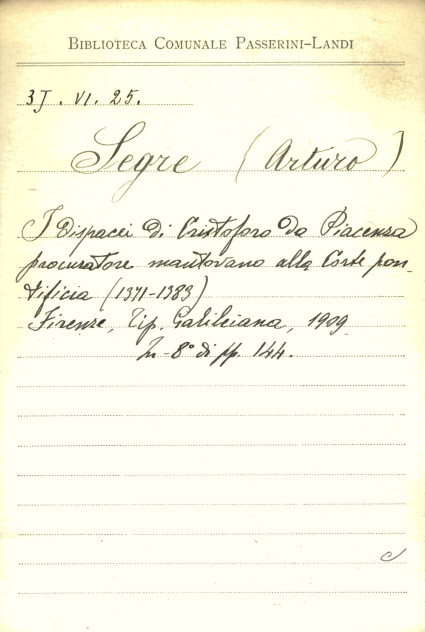 BIBLIOTECA COMUNALE PASSERINI-LANDI
3J. VI. 25.
Segre (Arturo)
I Dispacci di Cristoforo da Piacenza
procuratore mantovano alla Corte pon-
tificia (1371-1383)
Firenze, Tip. Galileiana, 1909
In-8° di pp. 144.